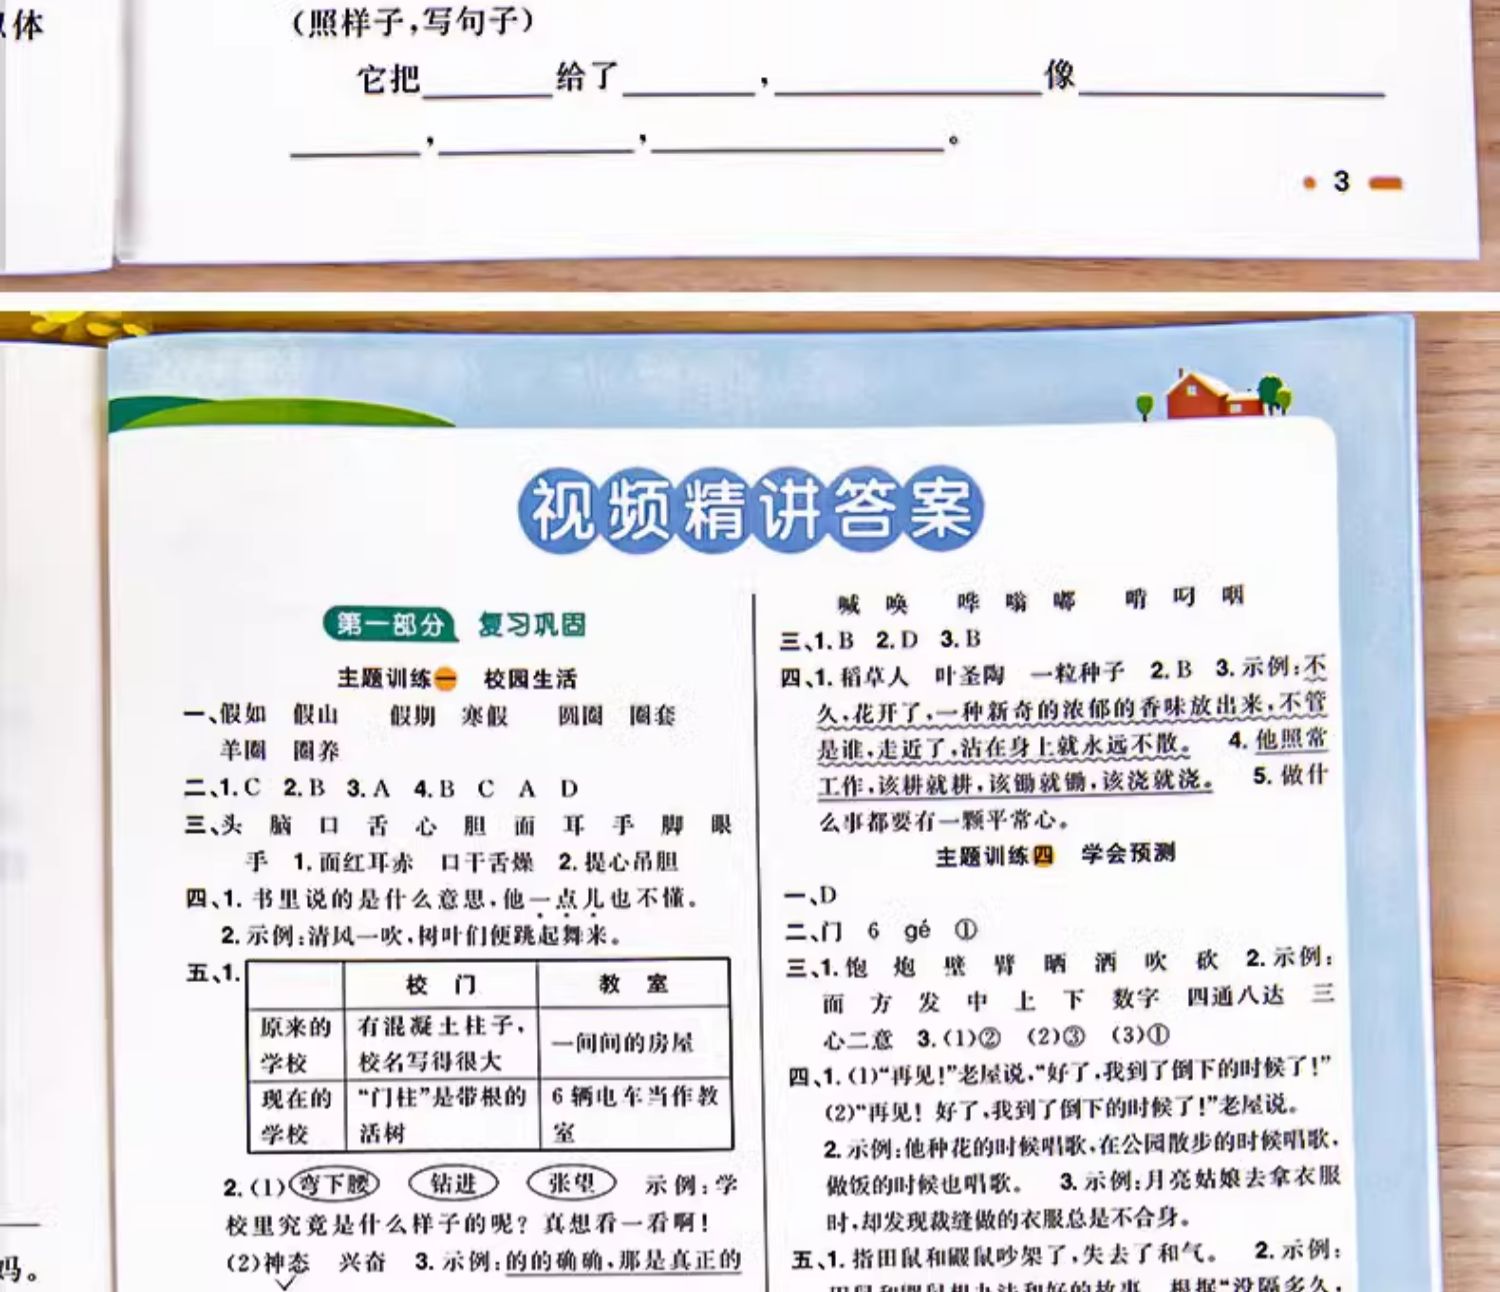 体
(照样子,写句子)
它把______给了______,____________像______________
______,_________,_____________。
3
视频精讲答案
第一部分 复习巩固
主题训练一 校园生活
一、假如 假山 假期 寒假 圆圈 圈套
羊圈 圈养
二、1. C 2. B 3. A 4. B C A D
三、头 脑 口 舌 心 胆 面 耳 手 脚 眼
手 1. 面红耳赤 口干舌燥 2. 提心吊胆
四、1. 书里说的是什么意思,他一点儿也不懂。
2. 示例:清风一吹,树叶们便跳起舞来。
五、1.
校 门 教 室
原来的学校 有混凝土柱子,校名写得很大 一间间的房屋
现在的学校 “门柱”是带根的活树 6 辆电车当作教室
2. (1)弯下腰 钻进 张望 示例:学
校里究竟是什么样子的呢? 真想看一看啊!
(2)神态 兴奋 3. 示例:的的确确,那是真正的
妈。
喊 唤 哗 嗡 嘟 啃 叼 咽
三、1. B 2. D 3. B
四、1. 稻草人 叶圣陶 一粒种子 2. B 3. 示例:不
久,花开了,一种新奇的浓郁的香味放出来,不管
是谁,走近了,沾在身上就永远不散。 4. 他照常
工作,该耕就耕,该锄就锄,该浇就浇。 5. 做什
么事都要有一颗平常心。
主题训练四 学会预测
一、D
二、门 6 gé ①
三、1. 饱 炮 壁 臂 晒 洒 吹 砍 2. 示例:
面 方 发 中 上 下 数字 四通八达 三
心二意 3. (1)② (2)③ (3)①
四、1. (1)“再见!”老屋说,“好了,我到了倒下的时候了!”
(2)“再见! 好了,我到了倒下的时候了!”老屋说。
2. 示例:他种花的时候唱歌,在公园散步的时候唱歌,
做饭的时候也唱歌。 3. 示例:月亮姑娘去拿衣服
时,却发现裁缝做的衣服总是不合身。
五、1. 指田鼠和鼹鼠吵架了,失去了和气。 2. 示例: